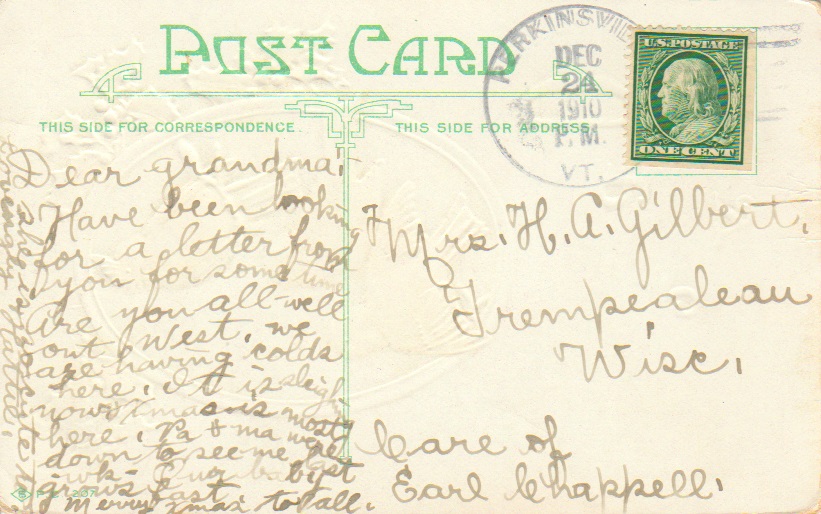 POST CARD
THIS SIDE FOR CORRESPONDENCE.
THIS SIDE FOR ADDRESS.
PERKINSVIL
DEC
24
1910
P. M.
VT.
U.S. POSTAGE
ONE CENT
Dear grandma:
Have been looking
for a letter from
you for some time
Are you all well
out West, we
are having colds
here. It is sleigh
now. Xmas is most
here. Pa & ma were
down to see me last
wk. Our baby
grows fast
Merry Xmas to all.
Lovingly Hattie.
Mrs. H. A. Gilbert,
Trempealeau
Wisc.
Care of
Earl Chappell.